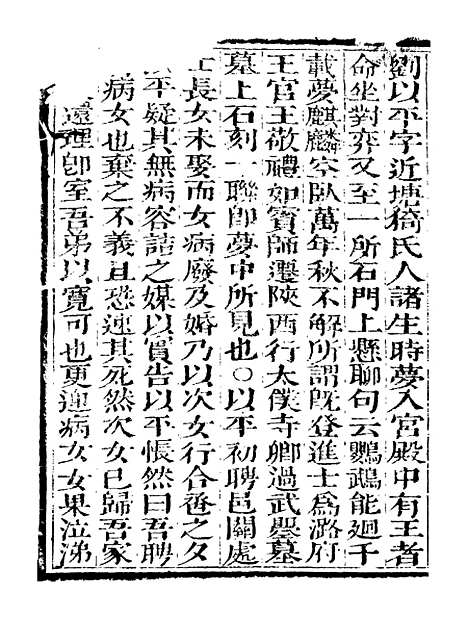 劉以平字近塘猗氏人諸生時夢入宮殿中有王者
命坐對弈又至一所石門上懸聊句云鸚鵡能廻千
載夢麒麟空臥萬年秋不解所謂旣登進士爲潞府
王官王敬禮如賓師遷陝西行太僕寺卿過武墨墓
墓上石刻一聯卽夢中所見也○以平初聘邑關處
士長女未娶而女病廢及婚乃以次女行合巹之夕
以平疑其無病容詰之媒以實告以平悵然曰吾聘
病女也棄之不義且恐速其死然次女已歸吾家
遠理卽室吾弟以寬可也更迎病女女果泣涕